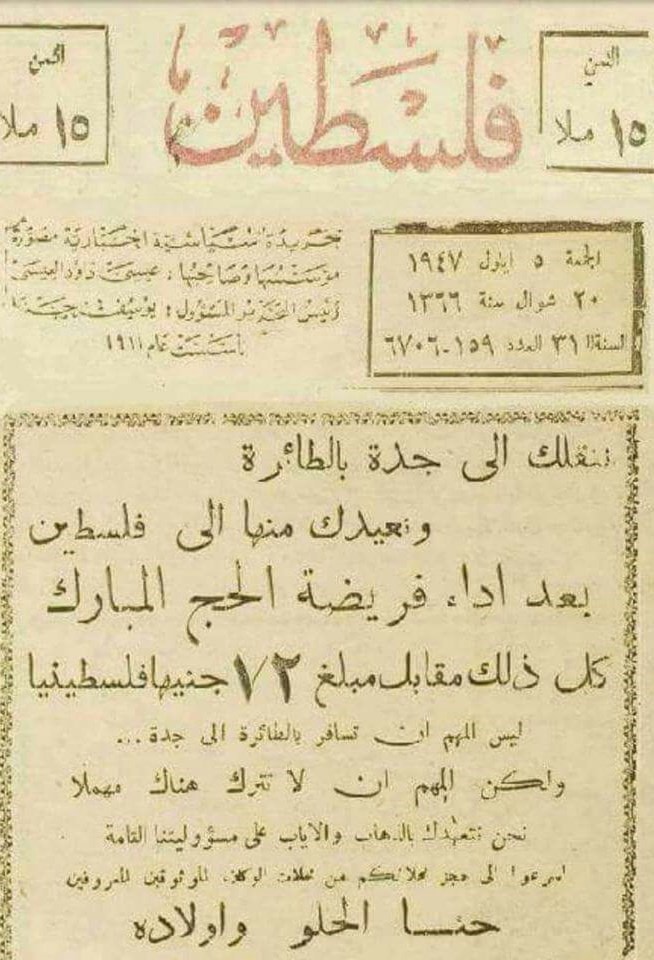 الثمن
١٥ ملا
فلسطين
الثمن
١٥ ملا
الجمعة ٥ ايلول ١٩٤٧
٢٠ شوال سنة ١٣٦٦
السنة ٣١ العدد ١٥٩-٦٧٠٦
جريدة سياسية اخبارية مصورة
مؤسسها وصاحبها : عيسى داود العيسى
رئيس التحرير المسؤول : يوسف حنا
تأسست عام ١٩١١
تنقلك الى جدة بالطائرة
وتعيدك منها الى فلسطين
بعد اداء فريضة الحج المبارك
كل ذلك مقابل مبلغ ٧٢ جنيها فلسطينيا
ليس المهم ان تسافر بالطائرة الى جدة ...
ولكن المهم ان لا تترك هناك مهملا
نحن نتعهدك بالذهاب والاياب على مسؤوليتنا التامة
اسرعوا الى حجز محلاتكم من محلات الوكلاء الموثوقين المعروفين
حنا الحلو واولاده